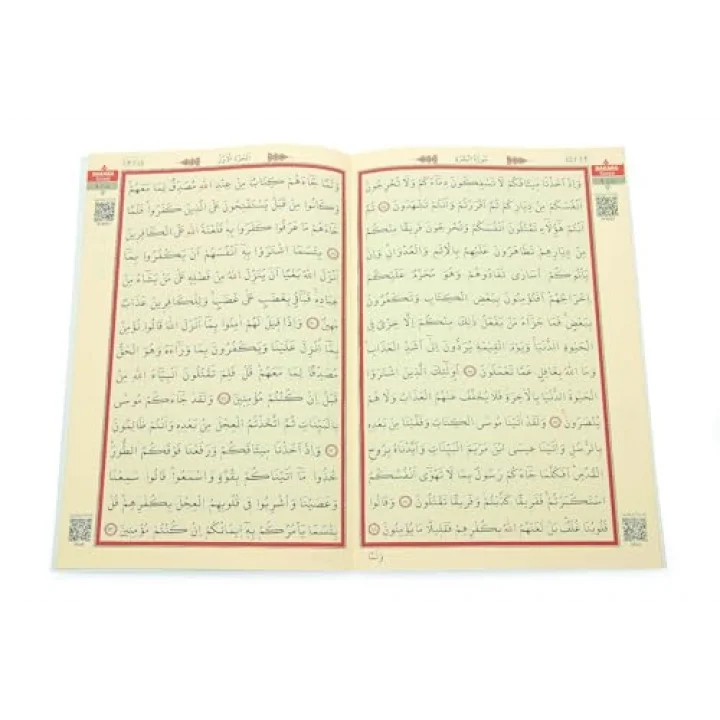 سُورَةُ الْبَقَرَةِ
وَاِذْ اَخَذْنَا م۪يثَاقَكُمْ لَا تَسْفِكُونَ دِمَٓاءَكُمْ وَلَا تُخْرِجُونَ
اَنْفُسَكُمْ مِنْ دِيَارِكُمْ ثُمَّ اَقْرَرْتُمْ وَاَنْتُمْ تَشْهَدُونَ ثُمَّ
اَنْتُمْ هٰٓؤُ۬لَٓاءِ تَقْتُلُونَ اَنْفُسَكُمْ وَتُخْرِجُونَ فَر۪يقًا مِنْكُمْ
مِنْ دِيَارِهِمْ تَظَاهَرُونَ عَلَيْهِمْ بِالْاِثْمِ وَالْعُدْوَانِ وَاِنْ
يَاْتُوكُمْ اُسَارٰى تُفَادُوهُمْ وَهُوَ مُحَرَّمٌ عَلَيْكُمْ
اِخْرَاجُهُمْ اَفَتُؤْمِنُونَ بِبَعْضِ الْكِتَابِ وَتَكْفُرُونَ
بِبَعْضٍ فَمَا جَزَٓاءُ مَنْ يَفْعَلُ ذٰلِكَ مِنْكُمْ اِلَّا خِزْيٌ فِي
الْحَيٰوةِ الدُّنْيَا وَيَوْمَ الْقِيٰمَةِ يُرَدُّونَ اِلٰٓى اَشَدِّ الْعَذَابِ
وَمَا اللّٰهُ بِغَافِلٍ عَمَّا تَعْمَلُونَ اُو۬لٰٓئِكَ الَّذ۪ينَ اشْتَرَوُا
الْحَيٰوةَ الدُّنْيَا بِالْاٰخِرَةِ فَلَا يُخَفَّفُ عَنْهُمُ الْعَذَابُ وَلَا هُمْ
يُنْصَرُونَ وَلَقَدْ اٰتَيْنَا مُوسَى الْكِتَابَ وَقَفَّيْنَا مِنْ بَعْدِه۪
بِالرُّسُلِ وَاٰتَيْنَا ع۪يسَى ابْنَ مَرْيَمَ الْبَيِّنَاتِ وَاَيَّدْنَاهُ بِرُوحِ
الْقُدُسِ اَفَكُلَّمَا جَٓاءَكُمْ رَسُولٌ بِمَا لَا تَهْوٰٓى اَنْفُسُكُمُ
اسْتَكْبَرْتُمْ فَفَر۪يقًا كَذَّبْتُمْ وَفَر۪يقًا تَقْتُلُونَ وَقَالُوا
قُلُوبُنَا غُلْفٌ بَلْ لَعَنَهُمُ اللّٰهُ بِكُفْرِهِمْ فَقَل۪يلًا مَا يُؤْمِنُونَ
وَلَمَّا
اَلْجُزْءُ الْاَوَّلُ
وَلَمَّا جَٓاءَهُمْ كِتَابٌ مِنْ عِنْدِ اللّٰهِ مُصَدِّقٌ لِمَا مَعَهُمْ
وَكَانُوا مِنْ قَبْلُ يَسْتَفْتِحُونَ عَلَى الَّذ۪ينَ كَفَرُوا فَلَمَّا
جَٓاءَهُمْ مَا عَرَفُوا كَفَرُوا بِه۪ فَلَعْنَةُ اللّٰهِ عَلَى الْكَافِر۪ينَ
بِئْسَمَا اشْتَرَوْا بِه۪ٓ اَنْفُسَهُمْ اَنْ يَكْفُرُوا بِمَٓا
اَنْزَلَ اللّٰهُ بَغْيًا اَنْ يُنَزِّلَ اللّٰهُ مِنْ فَضْلِه۪ عَلٰى مَنْ يَشَٓاءُ مِنْ
عِبَادِه۪ فَبَٓاؤُ۫ بِغَضَبٍ عَلٰى غَضَبٍ وَلِلْكَافِر۪ينَ عَذَابٌ
مُه۪ينٌ وَاِذَا ق۪يلَ لَهُمْ اٰمِنُوا بِمَٓا اَنْزَلَ اللّٰهُ قَالُوا نُؤْمِنُ
بِمَٓا اُنْزِلَ عَلَيْنَا وَيَكْفُرُونَ بِمَا وَرَٓاءَهُ وَهُوَ الْحَقُّ
مُصَدِّقًا لِمَا مَعَهُمْ قُلْ فَلِمَ تَقْتُلُونَ اَنْبِيَٓاءَ اللّٰهِ مِنْ
قَبْلُ اِنْ كُنْتُمْ مُؤْمِن۪ينَ وَلَقَدْ جَٓاءَكُمْ مُوسٰى
بِالْبَيِّنَاتِ ثُمَّ اتَّخَذْتُمُ الْعِجْلَ مِنْ بَعْدِه۪ وَاَنْتُمْ ظَالِمُونَ
وَاِذْ اَخَذْنَا م۪يثَاقَكُمْ وَرَفَعْنَا فَوْقَكُمُ الطُّورَ
خُذُوا مَٓا اٰتَيْنَاكُمْ بِقُوَّةٍ وَاسْمَعُوا قَالُوا سَمِعْنَا
وَعَصَيْنَا وَاُشْرِبُوا ف۪ي قُلُوبِهِمُ الْعِجْلَ بِكُفْرِهِمْ قُلْ
بِئْسَمَا يَاْمُرُكُمْ بِه۪ٓ ا۪يمَانُكُمْ اِنْ كُنْتُمْ مُؤْمِن۪ينَ